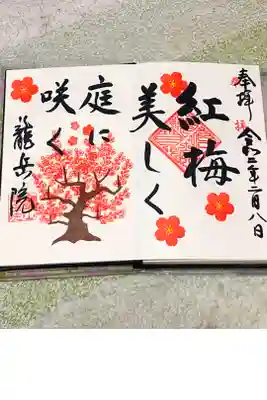 奉拝
令和二年二月八日
紅梅
美しく
庭に
咲く
龍岳院